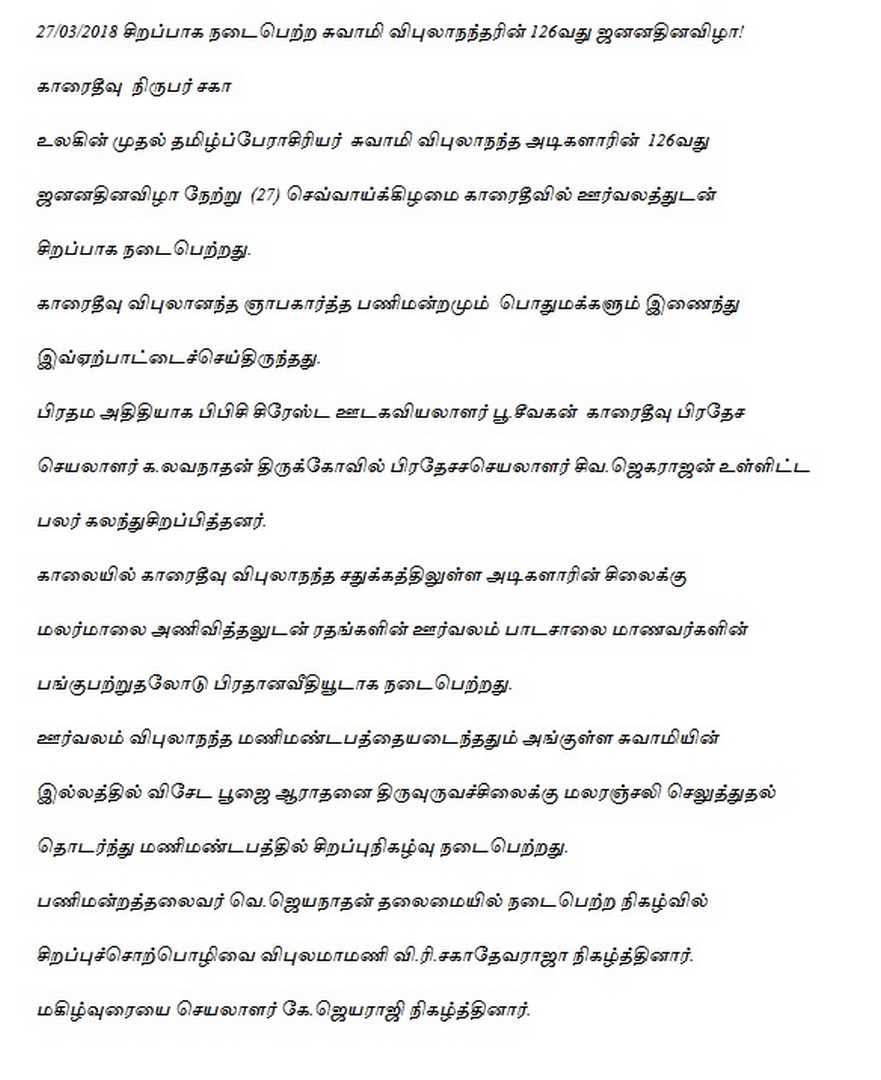 27/03/2018 சிறப்பாக நடைபெற்ற சுவாமி விபுலாநந்தரின் 126வது ஜனனதினவிழா!
காரைதீவு நிருபர் சகா
உலகின் முதல் தமிழ்ப்பேராசிரியர் சுவாமி விபுலாநந்த அடிகளாரின் 126வது
ஜனனதினவிழா நேற்று (27) செவ்வாய்க்கிழமை காரைதீவில் ஊர்வலத்துடன்
சிறப்பாக நடைபெற்றது.
காரைதீவு விபுலானந்த ஞாபகார்த்த பணிமன்றமும் பொதுமக்களும் இணைந்து
இவ்ஏற்பாட்டைச்செய்திருந்தது.
பிரதம அதிதியாக பிபிசி சிரேஸ்ட ஊடகவியலாளர் பூ.சீவகன் காரைதீவு பிரதேச
செயலாளர் க.லவநாதன் திருக்கோவில் பிரதேசசெயலாளர் சிவ.ஜெகராஜன் உள்ளிட்ட
பலர் கலந்துசிறப்பித்தனர்.
காலையில் காரைதீவு விபுலாநந்த சதுக்கத்திலுள்ள அடிகளாரின் சிலைக்கு
மலர்மாலை அணிவித்தலுடன் ரதங்களின் ஊர்வலம் பாடசாலை மாணவர்களின்
பங்குபற்றுதலோடு பிரதானவீதியூடாக நடைபெற்றது.
ஊர்வலம் விபுலாநந்த மணிமண்டபத்தையடைந்ததும் அங்குள்ள சுவாமியின்
இல்லத்தில் விசேட பூஜை ஆராதனை திருவுருவச்சிலைக்கு மலரஞ்சலி செலுத்துதல்
தொடர்ந்து மணிமண்டபத்தில் சிறப்புநிகழ்வு நடைபெற்றது.
பணிமன்றத்தலைவர் வெ.ஜெயநாதன் தலைமையில் நடைபெற்ற நிகழ்வில்
சிறப்புச்சொற்பொழிவை விபுலமாமணி வி.ரி.சகாதேவராஜா நிகழ்த்தினார்.
மகிழ்வுரையை செயலாளர் கே.ஜெயராஜி நிகழ்த்தினார்.